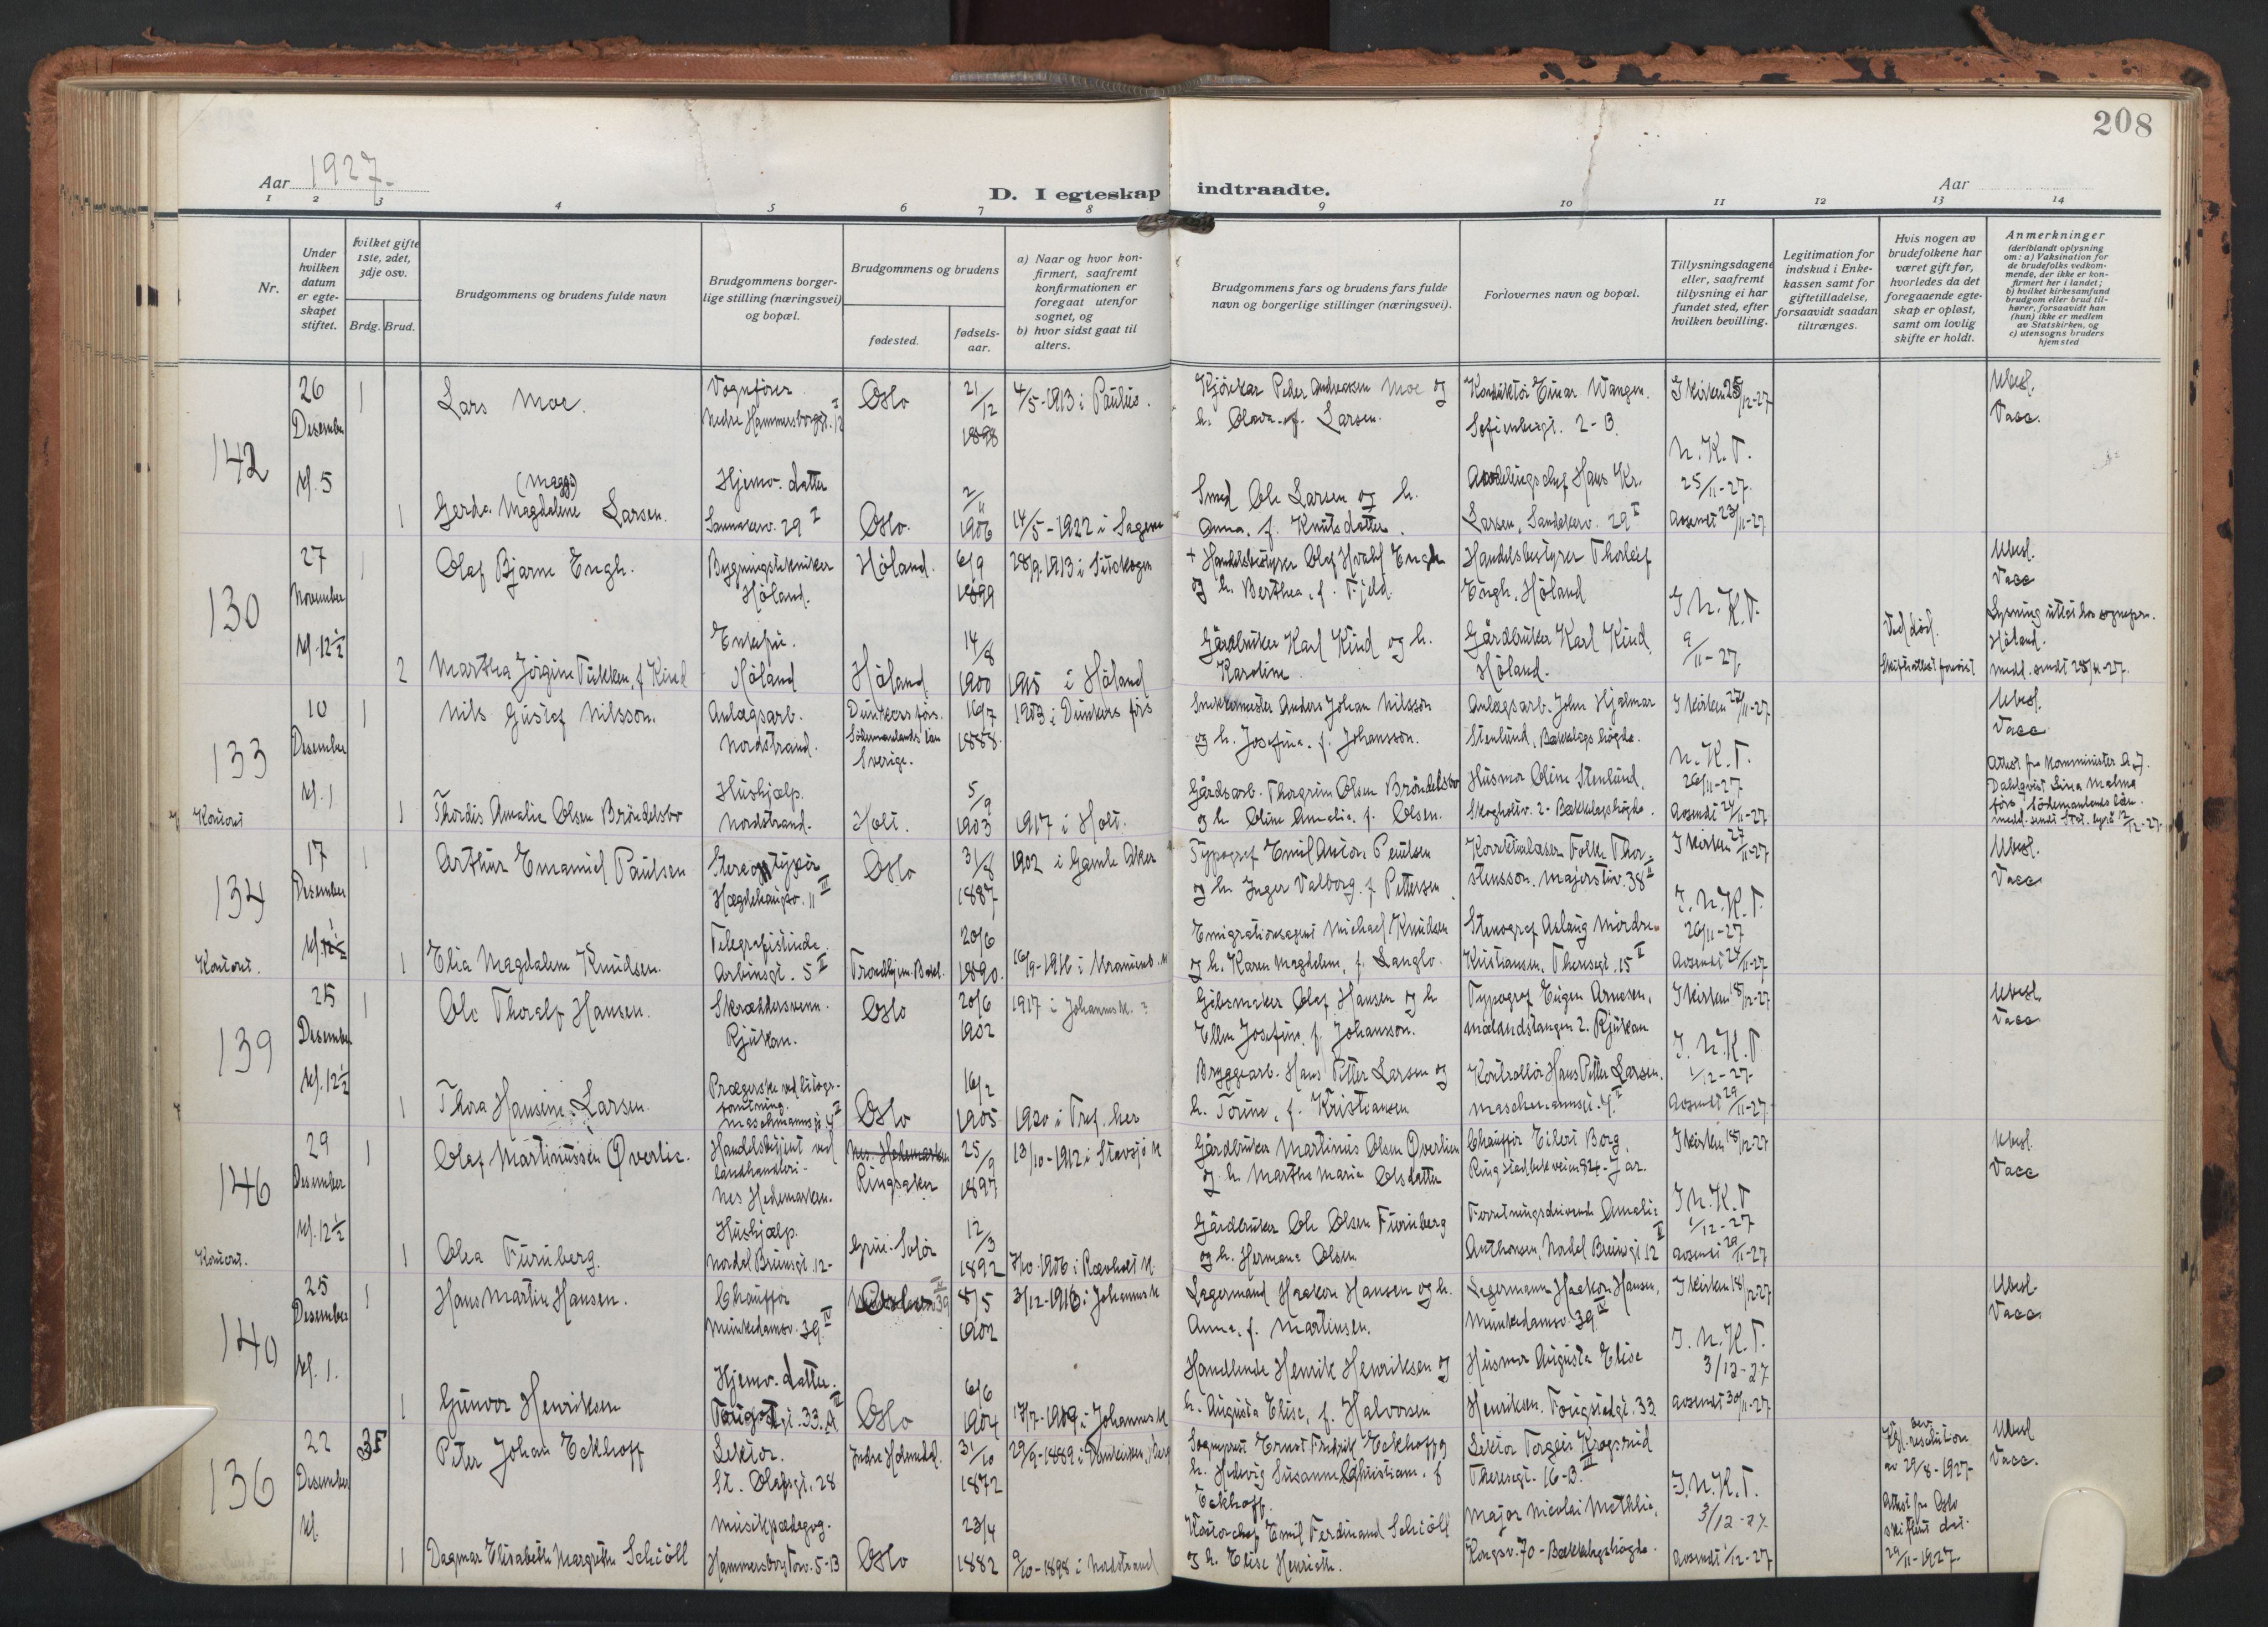 208
Aar 1927.
D. I egteskap indtraadte.
Aar
1 2 3 4 5 6 7 8 9 10 11 12 13 14
Nr.
Under
hvilken
datum
er egte-
skapet
stiftet.
Hvilket gifte
1ste, 2det,
3dje osv.
Brdg. Brud.
Brudgommens og brudens fulde navn
Brudgommens borger-
lige stilling (næringsvei)
og bopæl.
Brudgommens og brudens
fødested.
fødsels-
aar.
a) Naar og hvor kon-
firmert, saafremt
konfirmationen er
foregaat utenfor
sognet, og
b) hvor sidst gaat til
alters.
Brudgommens fars og brudens fars fulde
navn og borgerlige stillinger (næringsvei).
Forlovernes navn og bopæl.
Tillysningsdagene
eller, saafremt
tillysning ei har
fundet sted, efter
hvilken bevilling.
Legitimation for
indskud i Enke-
kassen samt for
giftetilladelse,
forsaavidt saadan
tiltrænges.
Hvis nogen av
brudefolkene har
været gift før,
hvorledes da det
foregaaende egte-
skap er opløst,
samt om lovlig
skifte er holdt.
Anmerkninger
(deriblandt oplysning
om: a) Vaksination for
de brudefolks vedkom-
mende, der ikke er kon-
firmert her i landet;
b) hvilket kirkesamfund
brudgom eller brud til-
hører, forsaavidt han
(hun) ikke er medlem
av Statskirken, og
c) utensogns bruders
hjemsted
142
26
Desember
kl. 5
1
Lars Moe.
Vognfører
Nedre Hammersborggt. 12 I
Oslo
21/12
1898
4/5-1913 i Paulus.
Kjørekar Peder Andreasen Moe og
h. Olava f. Larsen.
Konduktør Einar Wangen.
Sofienbergt. 2-B.
I kirken 25/12-27
Ubesl.
Vacc.
1
(Maggi)
Gerda Magdalene Larsen.
Hjemv. datter
Sannerv. 29 I
Oslo.
2/11
1906
14/5-1922 i Sagene
Smed Ole Larsen og h.
Anna, f. Knutsdatter.
Avdelingschef Hans Kr.
Larsen, Sandakerv. 29 I
N. K. T.
25/11-27.
Avsendt 23/11-27
130
27
November
kl. 12 1/2
1
Olaf Bjarne Engh.
Bygningstekniker
Höland.
Höland.
6/9
1899
28/9-1913 i Setskogen
+ Handelsbestyrer Olaf Hvahl Engh
og h. Berthea, f. Fjeld.
Handelsbestyrer Thorleif
Engh, Höland
I N. K. T.
9/11-27.
Ubesl.
Vacc
Lysning uttat hos sognepr.
Höland.
medd. sendt 28/11-27.
2
Martha Jörgine Tukken, f. Kind
Enkefru.
Höland
Höland
14/8
1900
1915 i Höland
Gårdbruker Karl Kind og h.
Karoline
Gårdbruker Karl Kind,
Höland.
Ved död.
Skifteattest forevist
133
Kontoret
10
Desember
kl. 1
1
Nils Gustaf Nilsson.
Anlægsarb.
Nordstrand.
Dunkers förs.
Södermanlands län
Sverige.
16/7
1888.
1903 i Dunkers förs
Snekkermester Anders Johan Nilsson
og h. Josefina, f. Johansson.
Anlægsarb. John Hjalmar
Stenlund, Bækkelagshögda.
I kirken 27/11-27
N. K. T.
26/11-27
Avsendt 24/11-27
Ubesl.
Vacc
Attest fra Komminister
Dahlqvist Lina Malma
förs. Södermanlands län.
medd. sendt Stat. byrå 12/12-27.
1
Thordis Amalie Olsen Bröndelsbo
Hushjælp.
Nordstrand.
Holt.
5/9
1903
1917 i Holt.
Gårdsarb. Thorgrim Olsen Bröndelsbo
og h. Oline Amalie, f. Olsen.
Husmor Oline Stenlund,
Skogholtv. 2 - Bækkelagshögda.
134
Kontoret.
17
Desember
1
Arthur Emanuel Paulsen
Stereotypör
Hægdehaugsv. 11 III
Oslo
31/8
1887
1902 i Gamle Aker
Typograf Emil Anton Paulsen
og h. Inger Valborg, f. Pettersen.
Korrekturlæser Folke Thor-
stensson. Majorstuv. 38 II
I kirken 27/11-27
I. N. K. T.
26/11-27
Avsendt 24/11-27
Ubesl.
Vacc
1
Elia Magdalene Knudsen.
Telegrafistinde.
Arbinsgt. 5 II
Trondhjem
20/6
1890.
Emigrationsagent Michael Knudsen
og h. Karen Magdalene, f. Langlo.
Stenograf Aslaug Mordre-
Kristiansen, Theresegt. 15 II
139
25
Desember
kl. 12 1/2
1
Ole Thoralf Hansen.
Skræddersvenn.
Rjukan.
Oslo
20/6
1902
1917 i Johannes k. ?
Gibsmaker Olaf Hansen og h.
Ellen Josefine, f. Johansson.
Typograf Eugen Arnesen,
Mælandstangen 2. Rjukan
I kirken 18/12-27
I. N. K. T
1/12-27
Avsendt 29/11-27.
Ubesl.
Vacc
1
Thora Hansine Larsen.
Prægerske ved litogr.
forretning.
Maschmannsgt. 4 II
Oslo
16/2
1905
1920 i Tref. her
Bryggearb. Hans Petter Larsen og
h. Torine, f. Kristiansen
Kontrollör Hans Petter Larsen.
Maschmannsgt. 4. I
146
Kontoret.
29
Desember
kl. 12 1/2
1
Olaf Martinussen Øverlie.
Handelsbetjent ved
landhandleri-
Nes Hedemarken.
Nes. Hedemarken
Ringsaker
25/9
1897
13/10-1912 i Stavsjö k
Gårdbruker Martinus Olsen Øverlien
og h. Marthe Marie Olsdatter
Chauffør Eilert Borg,
Ringstadbekveien 84 - Jar.
I kirken 18/12-27
I N. K. T
1/12-27
Avsendt 29/11-27
Ubesl.
Vacc
1
Olea Furuberg.
Hushjælp.
Nordal Brunsgt. 12-
Grue. Solör
12/3
1892
7/10-1906 i Rævholt k.
Gårdbruker Ole Olsen Furuberg
og h. Hermana Olsen
Forretningsdrivende Amalie
Anthonsen, Nordal Brunsgt. 12 II
140
25
Desember
kl. 1.
1
Hans Martin Hansen.
Chaufför
Munkedamsv. 39. IV
Oslo
8/5
1902
3/12-1916 i Johannes k
Lagermand Haakon Hansen og h.
Anna, f. Martinsen.
Lagermann Haakon Hansen,
Munkedamsv. 39 IV
I kirken 18/12-27
I. N. K. T.
3/12-27
avsendt 30/11-27
Ubesl.
Vacc.
1
Gunvor Henriksen
Hjemv. datter.
Tougstadgt. 33. A
Oslo
6/6
1904
17/7-1919 i Johannes k
Handlende Henrik Henriksen og
h. Augusta Elise, f. Halvorsen
Husmor Augusta Elise
Henriksen. Tougstadgt. 33.
136
22
Desember
kl.
Peter Johan Eckhoff
Lektor.
St. Olafsgt. 28
Indre Holmedal.
31/10
1872
29/9-1889 i Domkirken, Berg
Sogneprest Ernst Fredrik Eckhoff og
h. Hedevig Susanne Christiane, f
Eckhoff.
Lektor Torgeir Krogsrud
Theresegt. 16-B. III
I. N. K. T.
3/12-27.
Avsendt 1/12-27
Kgl. resolution
av 29/8-1927
Attest fra Oslo
skifterett dat.
29/11-1927
Ubesl
Vacc.
1
Dagmar Elisabeth Margrethe Schiöll
Musikpædagog.
Hammersborg torv. 5-B
Oslo
23/4
1882
9/10-1898 i Nordstrand
Kontorchef Emil Ferdinand Schiöll
og h. Elise Henriette.
Major Nicolai Methlie,
Kongsv. 70 - Bækkelagshögda.